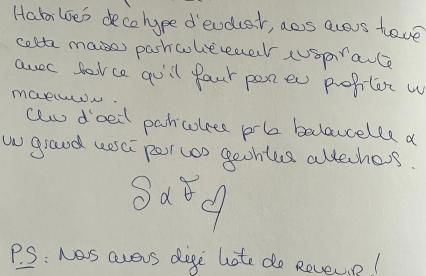 Habitués de ce type d'endroit, nous avons trouvé
cette maison particulièrement inspirante
avec tout ce qu'il faut pour en profiter un
maximum.
Clin d'oeil particulier pr la balancelle &
un grand merci pour vos gentilles attentions.
S & F
P.S : Nous avons déjà hâte de revenir !